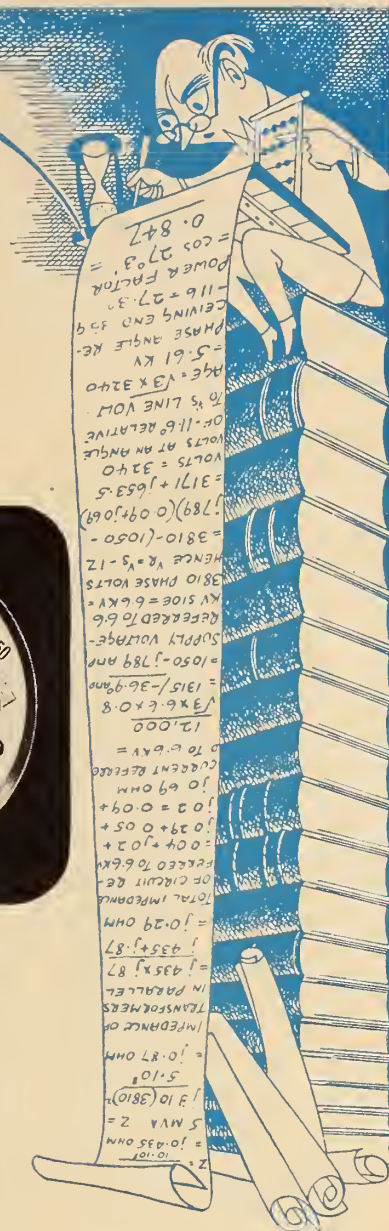 10·10⁶
Z = j0·435 OHM
5 MVA Z =
j 3 10 (3810)²
5·10⁶
= j0·87 OHM
IMPEDANCE OF
TRANSFORMERS
IN PARALLEL
= j·435 x j·87
j·435+j·87
= j0·29 OHM
TOTAL IMPEDANCE
OF CIRCUIT RE-
FERRED TO 6·6KV
= 0·04 + j0·2 +
j0·29 + 0·05 +
j0·2 = 0·09 +
j0·69 OHM
CURRENT REFERRE
D TO 6·6KV =
12,000
√3 x 6·6 x 0·8
= 1315/-36·9º AMP
= 1050 - j789 AMP
SUPPLY VOLTAGE-
REFERRED TO 6·6
KV SIDE = 6·6KV =
3810 PHASE VOLTS
HENCE VR = VS - IZ
= 3810 - (1050 -
j789)(0·09 + j0·69)
= 3171 + j653·5
VOLTS = 3240
VOLTS AT AN ANGLE
OF -11·6º RELATIVE
TO 'S LINE VOLT
AGE = √3 x 3240
= 5·61 KV
PHASE ANGLE RE-
CEIVING END 38·9
- 11·6 = 27·3º
POWER FACTOR
= COS 27º3' =
0·847
60